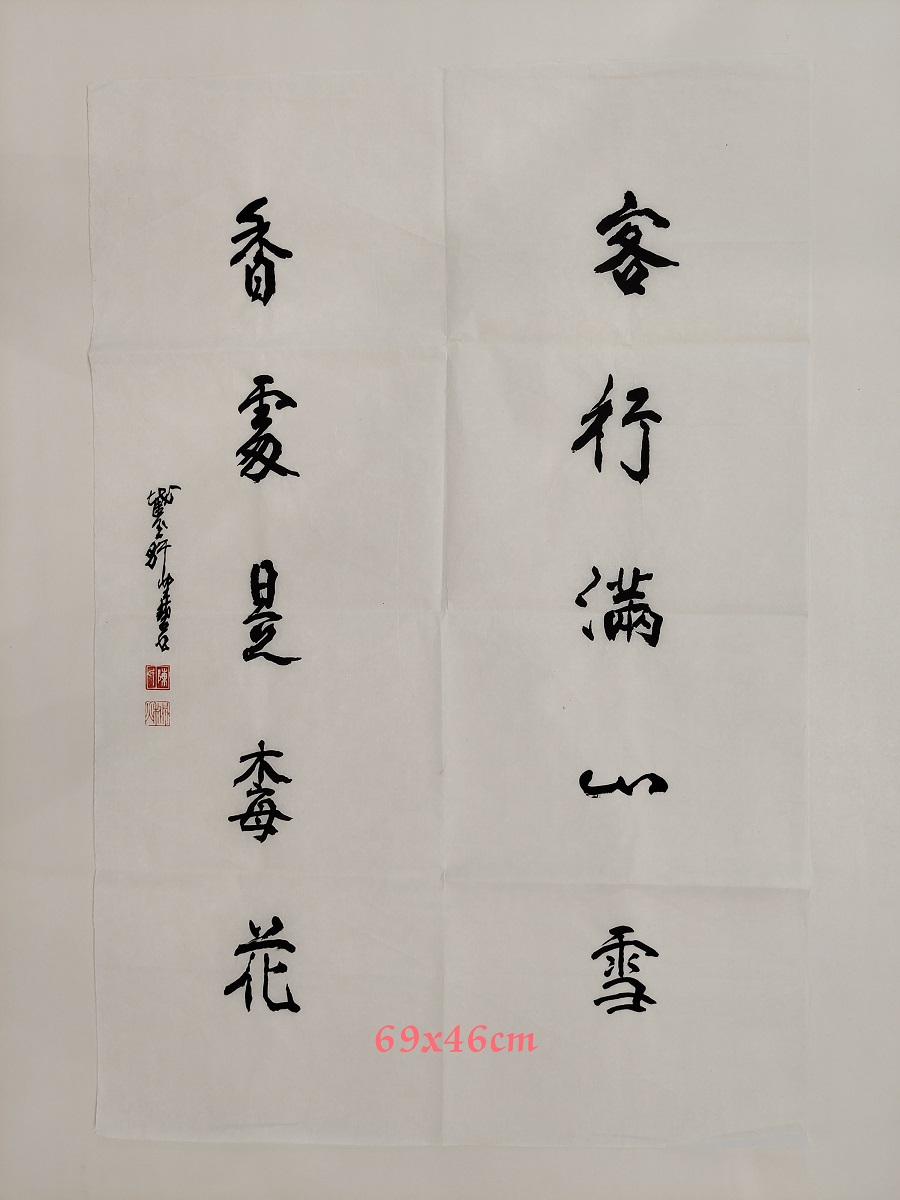 客行滿山雪
香處是梅花
69x46cm